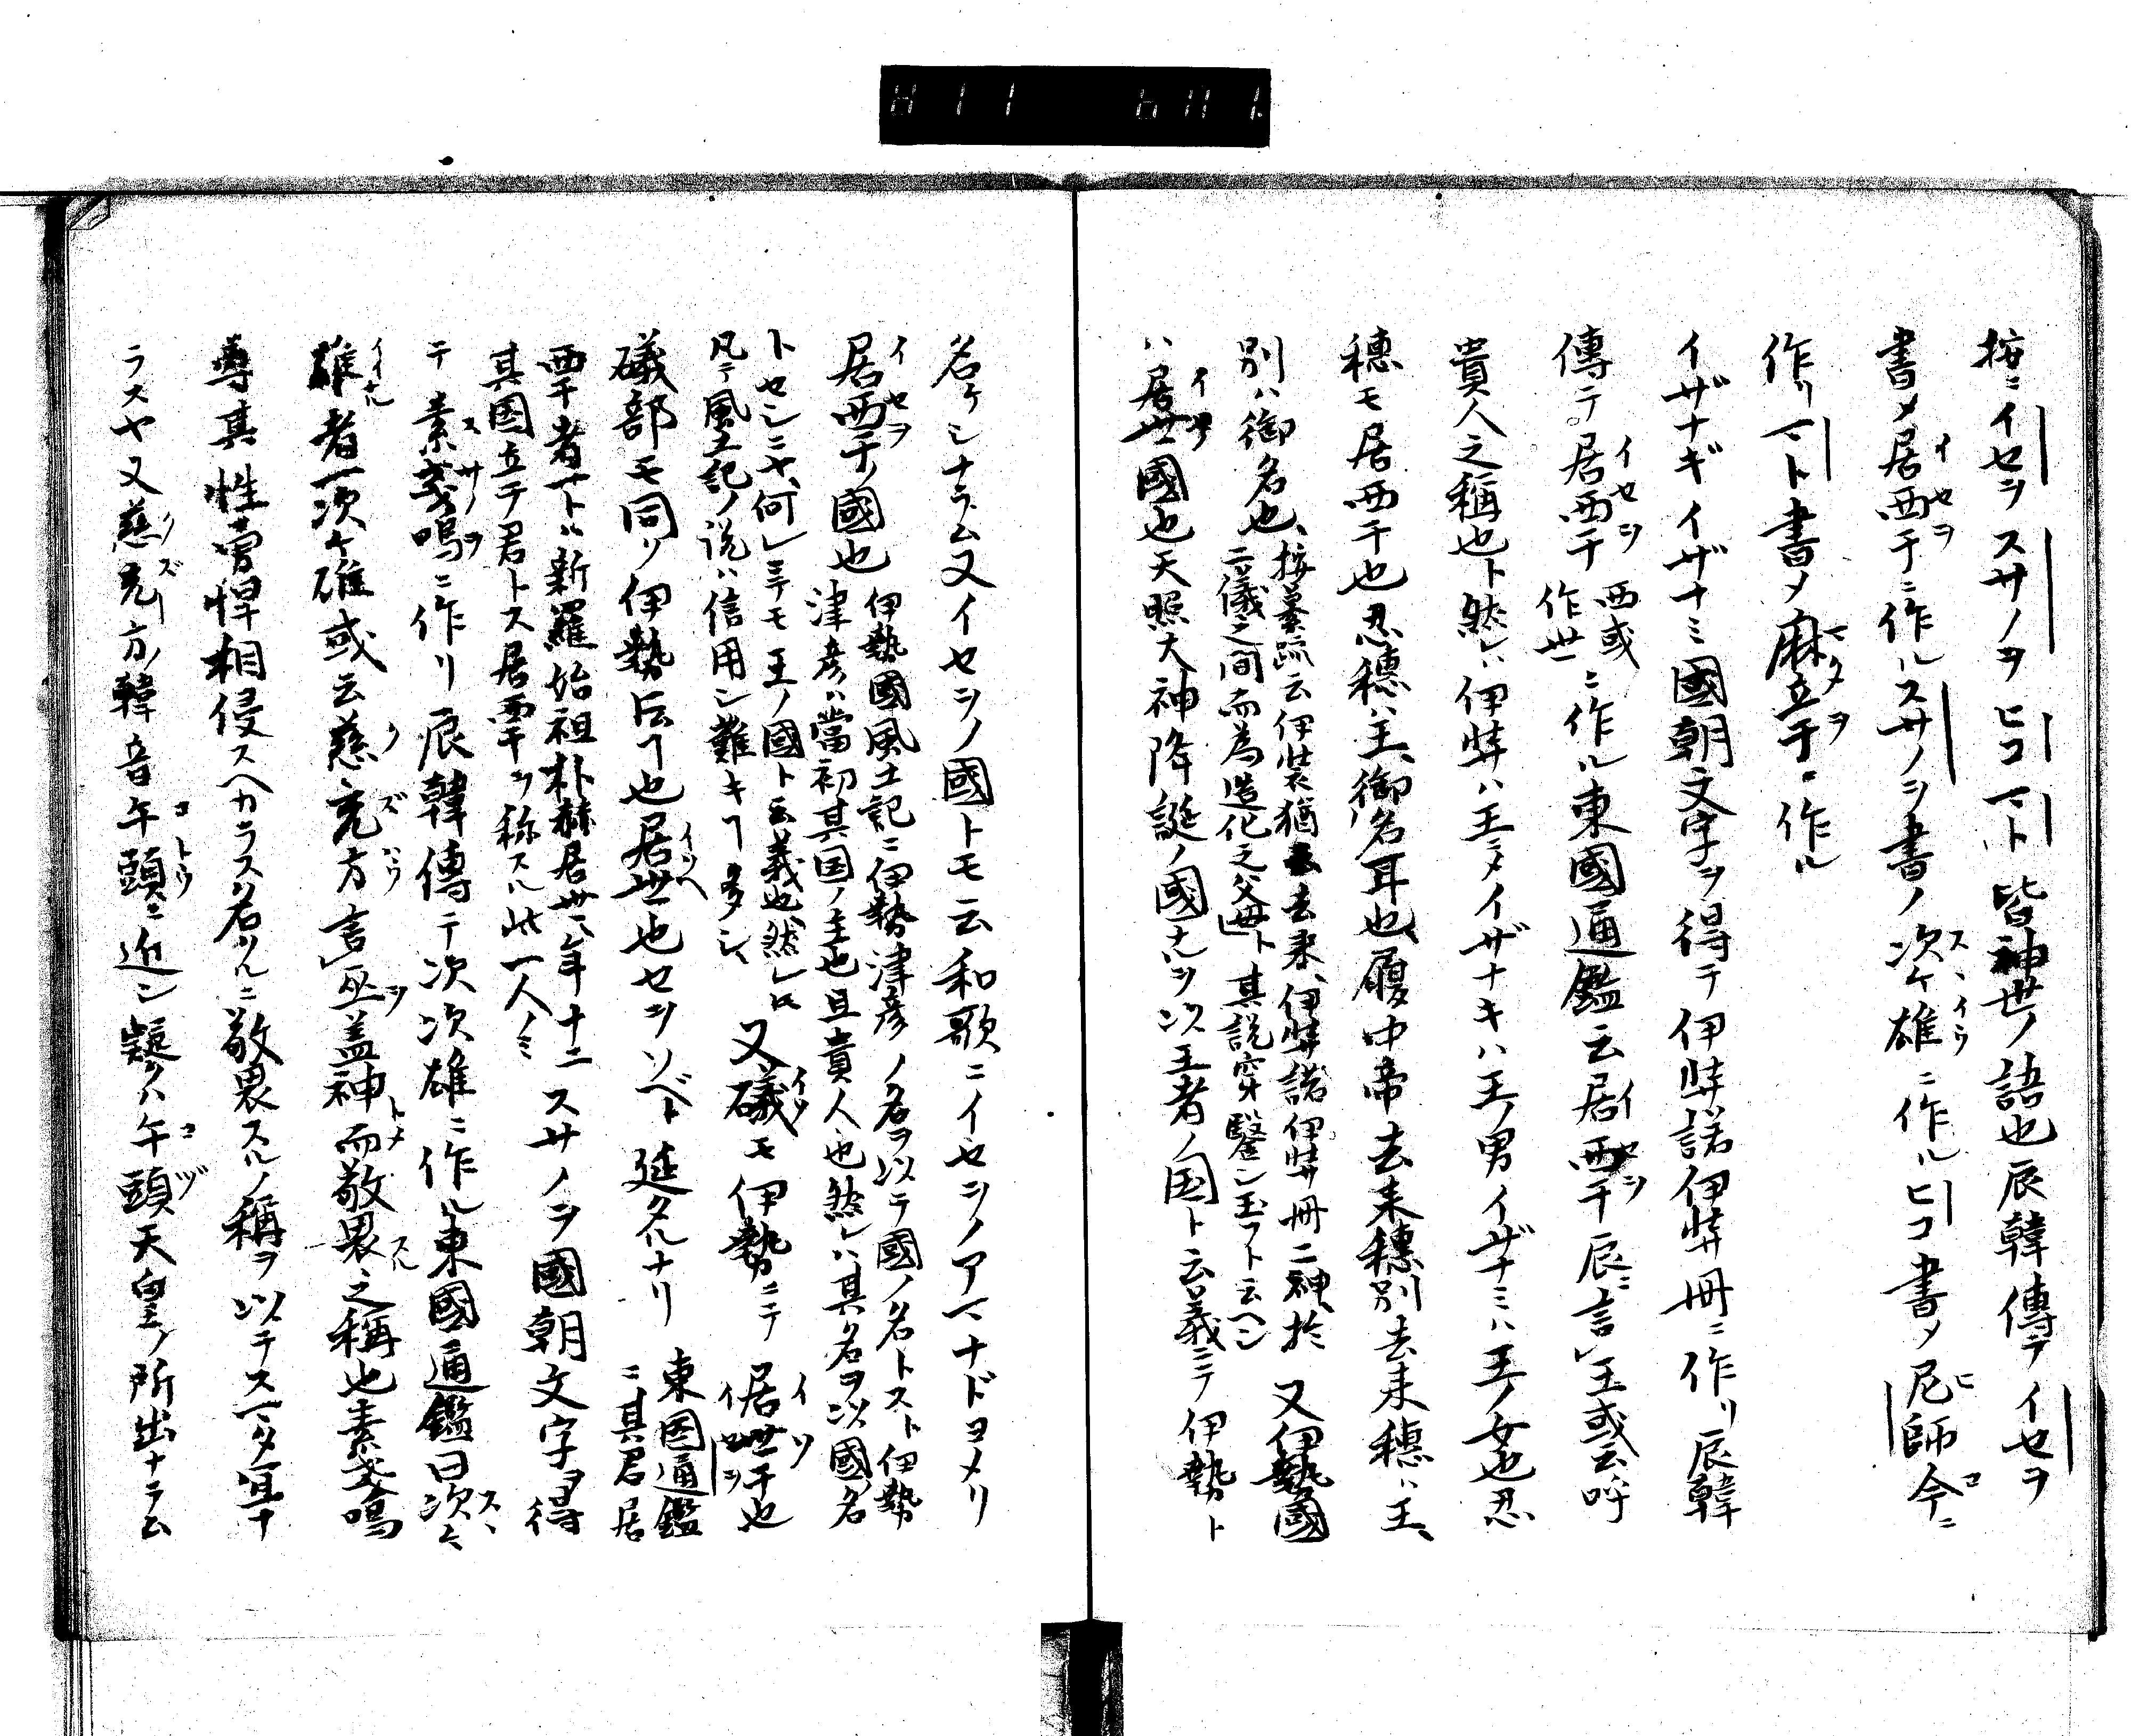 按ニイセヲスサノヲヒコマト皆神世ノ語也辰韓傳テイセヲ
書メ居西干ニ作ルスサノヲ書ノ次々雄ニ作ルヒコ書メ尼師今ニ
作リマト書メ麻立干ニ作ル
イザナギイザナミ國朝文字ヲ得テ伊弉諾伊弉冊ニ作リ辰韓
傳テ居西干西或作世ニ作ル東國通鑑云居西干辰言王或云呼
貴人之稱也ト然レハ伊弉ハ王ニメイザナキハ王ノ男イザナミハ王ノ女也忍
穗モ居西干也忍穗ハ王ノ御名耳也履中帝去来穗別去来穗ハ王
別ハ御名也按纂疏云伊弉猶去来伊弉諾伊弉冊二神於
二儀之間而為造化之父母ト其説穿鑿シ玉フト云ヘシ又伊勢國
ハ居世國也天照大神降誕ノ國ナルヲ以王者ノ国ト云義ニテ伊勢ト
名ケシナラム又イセヲノ國トモ云和歌ニイセヲノアマナドヨメリ
居西干ノ國也伊勢國風土記ニ伊勢津彦ノ名ヲ以テ國ノ名トスト伊勢
津彦ハ當初其国ノ主也且貴人也然レハ其名ヲ以國名
トセシニヤ何レニテモ王ノ國ト云義也然レ𪜈
凡テ風土記ノ説ハ信用シ難キヿ多シ又礒モ伊勢ニテ居世干也
礒部モ同リ伊勢ト云ヿ也居世也セヲソベト延タルナリ東国通鑑ニ其君居
西干者ト八新羅始祖朴赫居世年十二
其国立テ君トス居西干ヲ称スル此一人ノミスサノヲ國朝文字ヲ得
テ素戔嗚ニ作リ辰韓傳テ次次雄ニ作ル東國通鑑曰次々
雄者一次々雄或云慈充方言巫盖神而敬畏之稱也素戔嗚
尊其性雷悍相侵スヘカラス名ツルニ敬畏スルノ稱ヲ以テス
ラスヤ又慈充方韓音午頭ニ近シ疑クハ午頭天皇ノ所出ナラム